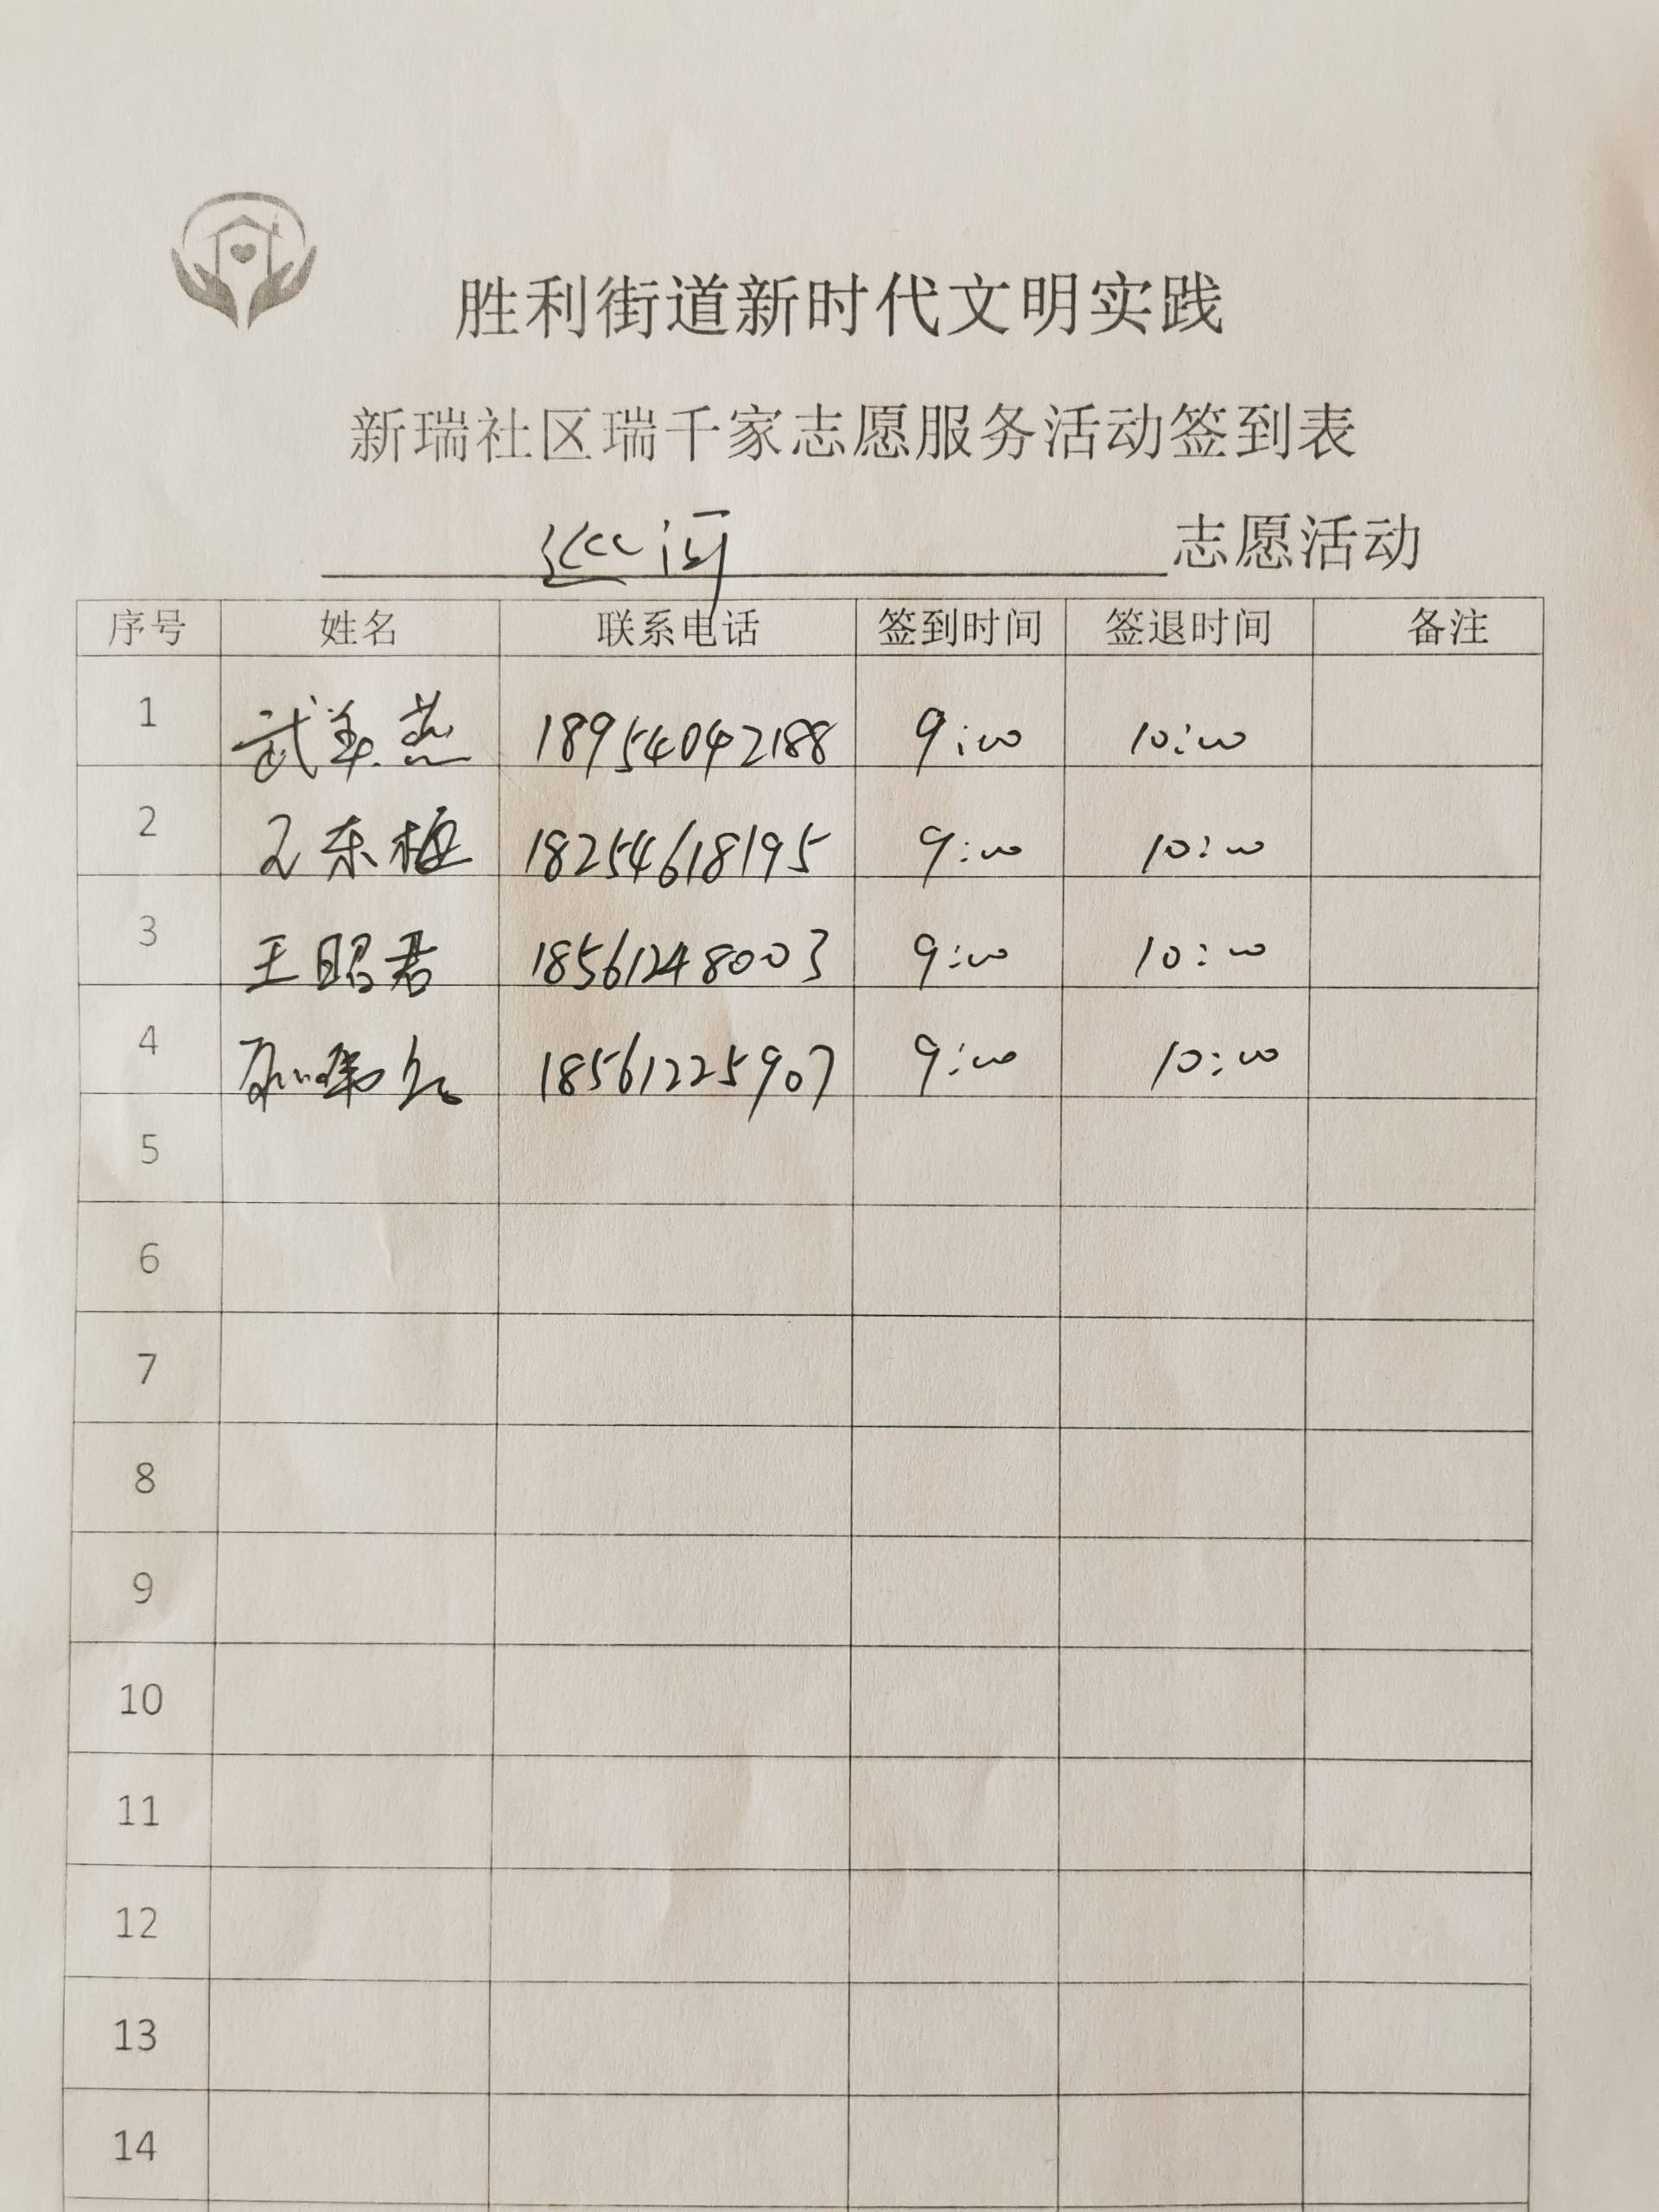 胜利街道新时代文明实践
新瑞社区瑞千家志愿服务活动签到表
巡河 志愿活动
序号 姓名 联系电话 签到时间 签退时间 备注
1 武美燕 18954042188 9:00 10:00
2 王东梅 18254618195 9:00 10:00
3 王昭君 18561248003 9:00 10:00
4 18561225907 9:00 10:00
5
6
7
8
9
10
11
12
13
14